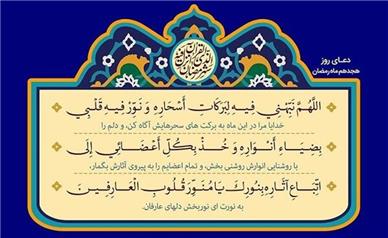 دعای روز
هجدهم ماه رمضان
اللَّهُمَّ نَبِّهْنِي فِيهِ لِبَرَكَاتِ أَسْحَارِهِ وَ نَوِّرْ فِيهِ قَلْبِي
خدایا مرا در این ماه به برکت های سحرهایش آگاه کن، و دلم را
بِضِيَاءِ أَنْوَارِهِ وَ خُذْ بِكُلِّ أَعْضَائِي إِلَى
با روشنایی انوارش روشنی بخش، و تمام اعضایم را به پیروی آثارش بگمار،
اتِّبَاعِ آثَارِهِ بِنُورِكَ يَا مُنَوِّرَ قُلُوبِ الْعَارِفِينَ
به نورت ای نوربخش دلهای عارفان.